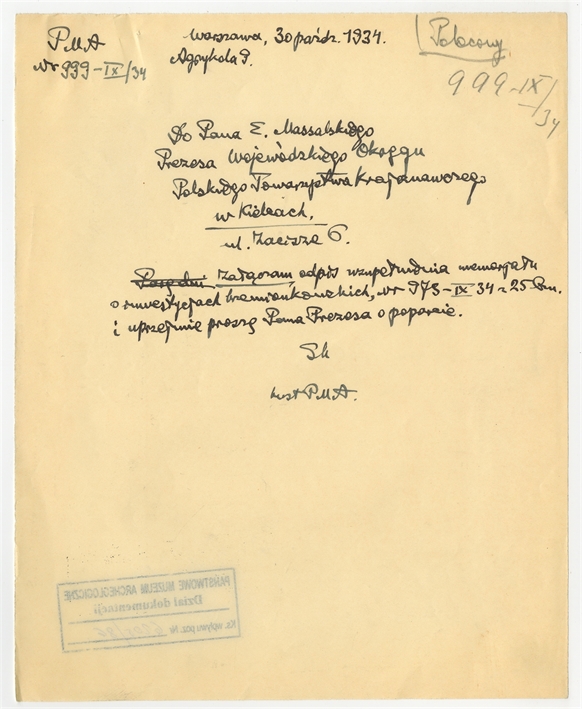 PMA
Nr 999-IX/34
Warszawa, 30 paźdz. 1934.
Agrykola 9.
Polecony
999-IX/34
Do Pana E. Massalskiego
Prezesa Wojewódzkiego Okręgu
Polskiego Towarzystwa Krajoznawczego
w Kielcach,
ul. Zacisze 6.
Załączam odpis uzupełnienia memorjału
o inwestycjach krzemionkowskich, Nr 973-IX 34 z 25 bm.
i uprzejmie proszę Pana Prezesa o poparcie.
Sk
kust PMA.
PAŃSTWOWE MUZEUM ARCHEOLOGICZNE
Dział dokumentacji
Ks. wpływu poz. Nr